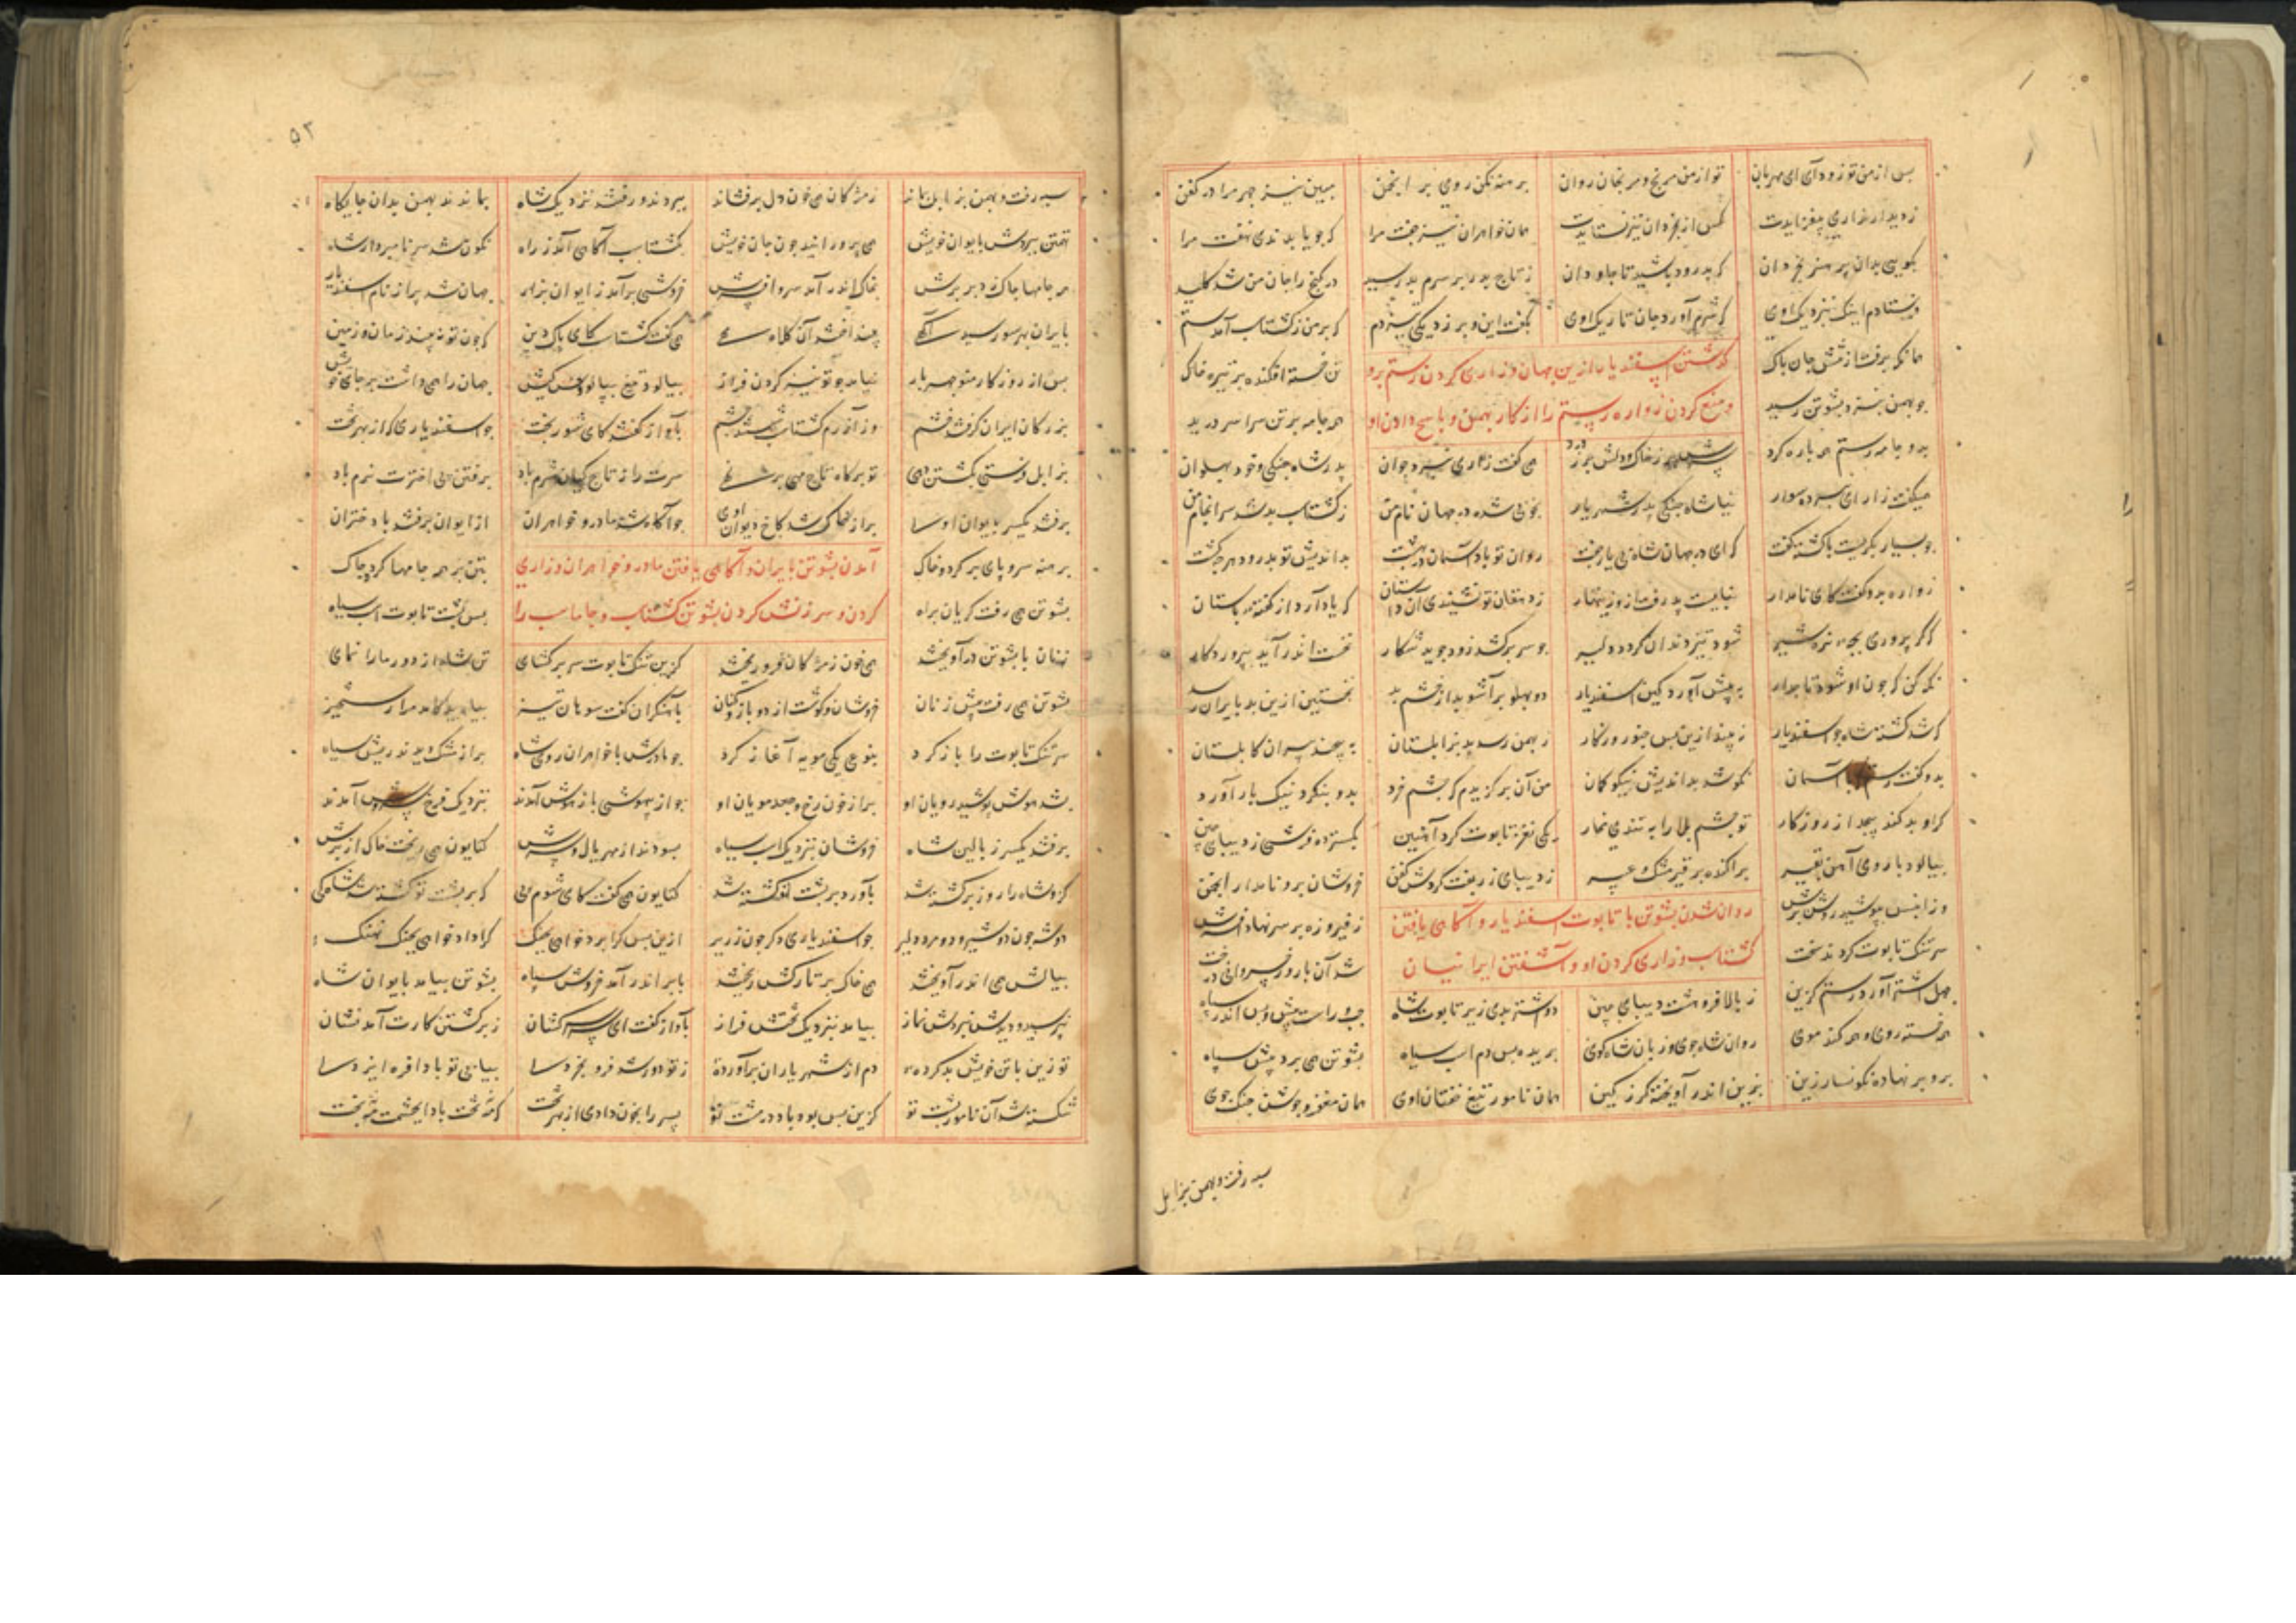 پس از من تو زود آی ای مهربان تو از من مرنج و مرنجان روان برهنه مکن روی بر انجمن مبین نیز چهر مرا در کفن
ز دیدار زاری بیفزایدت کس از بخردان نیز نستایدت همان خواهران نیز جفت مرا که جویا بدندی نهفت مرا
بگویی بدان پر هنر بخردان که پدرود باشید تا جاودان ز تاج پدر بر سرم بد رسید در گنج را جان من شد کلید
فرستادم اینک نزدیک اوی که شرم آورد جان تاریک اوی بگفت این و برزد یکی تیز دم که بر من ز گشتاسب آمد ستم
همانگه برفت از تنش جان پاک تن خسته افکنده بر تیره خاک
گذشتن اسفندیار ازین جهان و زاری کردن رستم برو
چو بهمن بنزد پشوتن رسید همه جامه بر تن سراسر درید
و منع کردن زواره رستم را از کار بهمن و پاسخ دادن او
برو جامه رستم همه پاره کرد سرش پر ز خاک و دلش پر ز درد همی گفت زار ای نبرده جوان پدر شاه جنگی و خود پهلوان
میگفت زار ای نبرده سوار نیا شاه جنگی پدر شهریار بخوبی شده در جهان نام من ز گشتاسب بد شد سرانجام من
چو بسیار بگریست با کشته گفت که ای در جهان شاه بی یار و جفت روان تو باد آسمان در بهشت بداندیش تو بدرود هر چه کشت
زواره بدو گفت کای نامدار نبایست پذرفت ازو زینهار ز دهقان تو نشنیدی آن داستان که یاد آرد از گفته باستان
که گر پروری بچه نره شیر شود تیز دندان و گردد دلیر چو سر برکشد زود جوید شکار نخست اندر آید بپروردگار
نگه کن که چون او شود تاجدار به پیش آورد کین اسفندیار دو پهلو برآشوبد از خشم بد نخستین ازین بد بایران رسد
که شد کشته شاهی چو اسفندیار نبیند ازین پس چنو روزگار ز بهمن رسد بد بزابلستان به پیچند پیران کابلستان
بدو گفت رستم که با آسمان نکوشد بداندیش و نیکو گمان من آن برگزیدم که چشم خرد بدو بنگرد نیک یاد آورد
گر او بد کند پیچد از روزگار تو چشم بلا را به تندی مخار یکی نغز تابوت کرد آهنین بگسترد فرشی ز دیبای چین
بیالود با روی آهن بقیر پراکنده بر قیر مشک و عبیر ز دیبای زربفت کردش کفن خروشان برو نامدار انجمن
وزان پس بپوشید روشن برش ز فیروزه بر سر نهاد افسرش
روان شدن پشوتن با تابوت اسفندیار و آگاهی یافتن
سر تنگ تابوت کردند سخت شد آن بارور خسروانی درخت
گشتاسب و زاری کردن او و آشفتن ایرانیان
چهل اشتر آورد رستم گزین ز بالا فروهشت دیبای چین دو اشتر بدی زیر تابوت شاه چپ و راست پیش و پس اندر سپاه
همه خسته روی و همه کنده موی روان شاه جوی و زبان شاه گوی بریده پس دم اسب سیاه پشوتن همی برد پیش سپاه
برو بر نهاده نگونسار زین ز زین اندر آویخته گرز کین همان نامور تیغ و خفتان اوی همان مغفر و جوشن جنگ جوی
سپه رفت و بهمن بزابل
۵۲
سپه رفت و بهمن بزابل بماند ز مژگان همی خون دل برفشاند ببردند و رفتند نزدیک شاه بماندند بهمن بدان جایگاه
تهمتن ببردش بایوان خویش همی پرورانید چون جان خویش بگشتاسب آگاهی آمد ز راه نگون شد سر نامبردار شاه
همه جامها چاک زد بر برش بخاک اندر آمد سر و افسرش خروشی برآمد ز ایوان بزار جهان شد پر از نام اسفندیار
بایران بهر سو رسید آگهی بینداخت آن کلاه مهی همی گفت گشتاسب کای پاک دین که چون تو نبیند زمان و زمین
پس از روزگار منوچهر باز نیامد چو تو نیز گردن فراز بیالود تیغ و بپالود کیش جهان را همی داشت بر جای خویش
بزرگان ایران گرفتند خشم وز آزرم گشتاسب شستند چشم بآواز گفتند کای شوربخت چو اسفندیاری که از بهر تخت
بزابل فرستی بکشتن دهی تو بر گاه تاج مهی بر نهی سرت را ز تاج کیان شرم باد برفتن پی اخترت نرم باد
برفتند یکسر ز ایوان او پر از خاک شد کاخ و دیوان او چو آگاه شد مادر و خواهران از ایوان برفتند با دختران
برهنه سر و پای پر گرد و خاک بتن بر همه جامها کرده چاک
آمدن پشوتن بایران و آگاهی یافتن مادر و خواهران و زاری
پشوتن همی رفت گریان براه پس پشت تابوت اسب سیاه
کردن و سرزنش کردن پشوتن گشتاسب و جاماسب را
زنان با پشوتن در آویختند همی خون ز مژگان فرو ریختند کزین تنگ تابوت سر بر گشای تن شاه از دور ما را نمای
پشوتن همی رفت پیش زنان خروشان و گوشت از دو بازو کنان بآهنگران گفت سوهان تیز بیارید کامد مرا رستخیز
سر تنگ تابوت را باز کرد بنوعی یکی مویه آغاز کرد چو مادرش با خواهران روی شاه پر از مشک دیدند ریش سیاه
بشد هوش پوشیده رویان او پر از خون رخ و جعد مویان او چو از بیهوشی باز هوش آمدند بنزدیک فرخ سروش آمدند
برفتند یکسر ز بالین شاه خروشان بنزدیک اسب سیاه بسودند از مهر یال و سرش کتایون همی ریخت خاک از برش
کزو شاه را روز برگشته شد بآورد بر پشت او کشته شد کتایون همی گفت کای شوم پی که بر پشت تو کشته شد شاه کی
چو اسفندیاری دگر چون زریر ازین پس کرا برد خواهی بجنگ کرا داد خواهی بچنگ نهنگ
بیالش همی اندر آویختند همی خاک بر تارکش ریختند بابر اندر آمد خروش سپاه پشوتن بیامد بایوان شاه
بپرسید و دیدش نبردش نماز بیامد بنزدیک تختش فراز بآواز گفت ای سر سرکشان ز برگشتن کارت آمد نشان
تو زین با تن خویش بد کرده دم از شهریاران برآورده ز تو دور شد فره و بخردی بیابی تو بادافره ایزدی
شکسته شد آن نامور پشت تو کزین پس بود باد در مشت تو پسر را بخون دادی از بهر تخت که مه تخت بادا بچشمت مه بخت